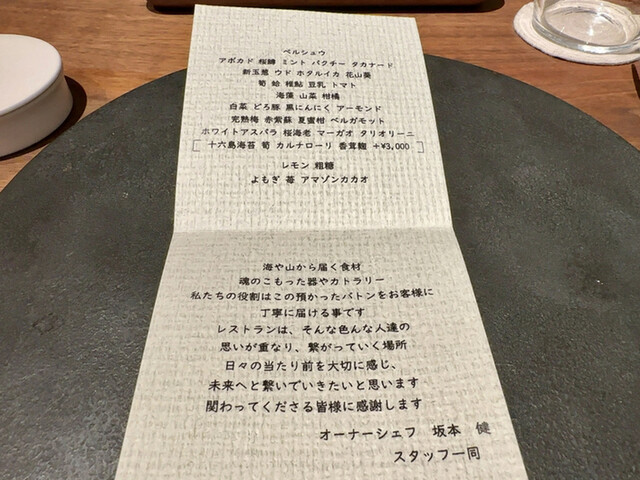 ペルシュウ
アボカド 桜鱒 ミント パクチー タカナード
新玉葱 ウド ホタルイカ 花山葵
筍 蛤 稚鮎 豆乳 トマト
海藻 山菜 柑橘
白菜 どろ豚 黒にんにく アーモンド
完熟梅 赤紫蘇 夏蜜柑 ベルガモット
ホワイトアスパラ 桜海老 マーガオ タリオリーニ
[ 十六島海苔 筍 カルナローリ 香茸麹 +¥3,000 ]
レモン 粗糖
よもぎ 苺 アマゾンカカオ
海や山から届く食材
魂のこもった器やカトラリー
私たちの役割はこの預かったバトンをお客様に
丁寧に届ける事です
レストランは、そんな色んな人達の
思いが重なり、繋がっていく場所
日々の当たり前を大切に感じ、
未来へと繋いでいきたいと思います
関わってくださる皆様に感謝します
オーナーシェフ 坂本 健
スタッフ一同